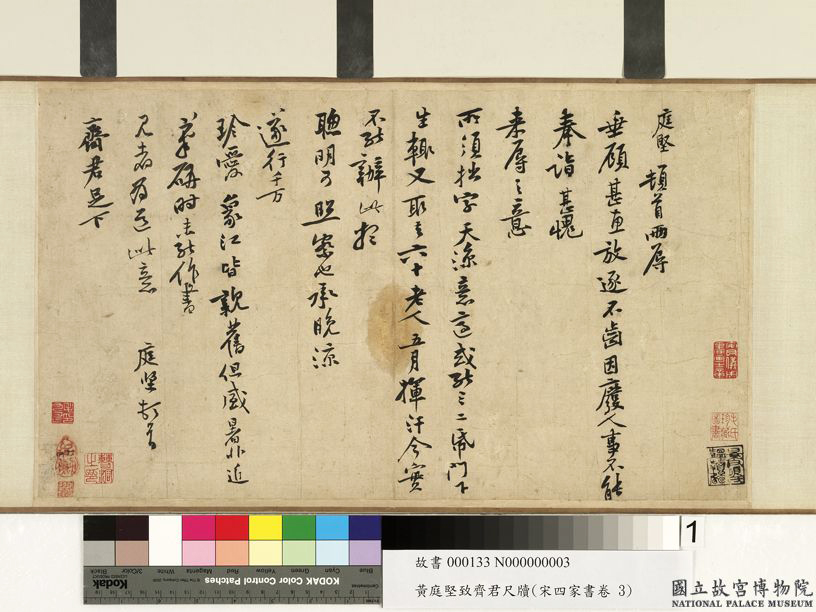 庭堅頓首兩辱
垂顧甚惠放逐不齒因廢人事不能
奉詣甚愧
來辱之意
所須拙字天涼意適或能三二紙門下
生輒又取去六十老人五月揮汗今實
不能辦此想
聰明可照察也承晚涼
遂行千万
珍愛象江皆親舊但盛暑非近
筆研時未能作書
見者為道此意
庭堅頓首
齊君足下
Kodak
KODAK Color Control Patches
Blue
Cyan
Green
Yellow
Red
Magenta
White
3/Color
Black
1
故書 000133 N000000003
黃庭堅致齊君尺牘(宋四家書卷 3)
國立故宮博物院
NATIONAL PALACE MUSEUM